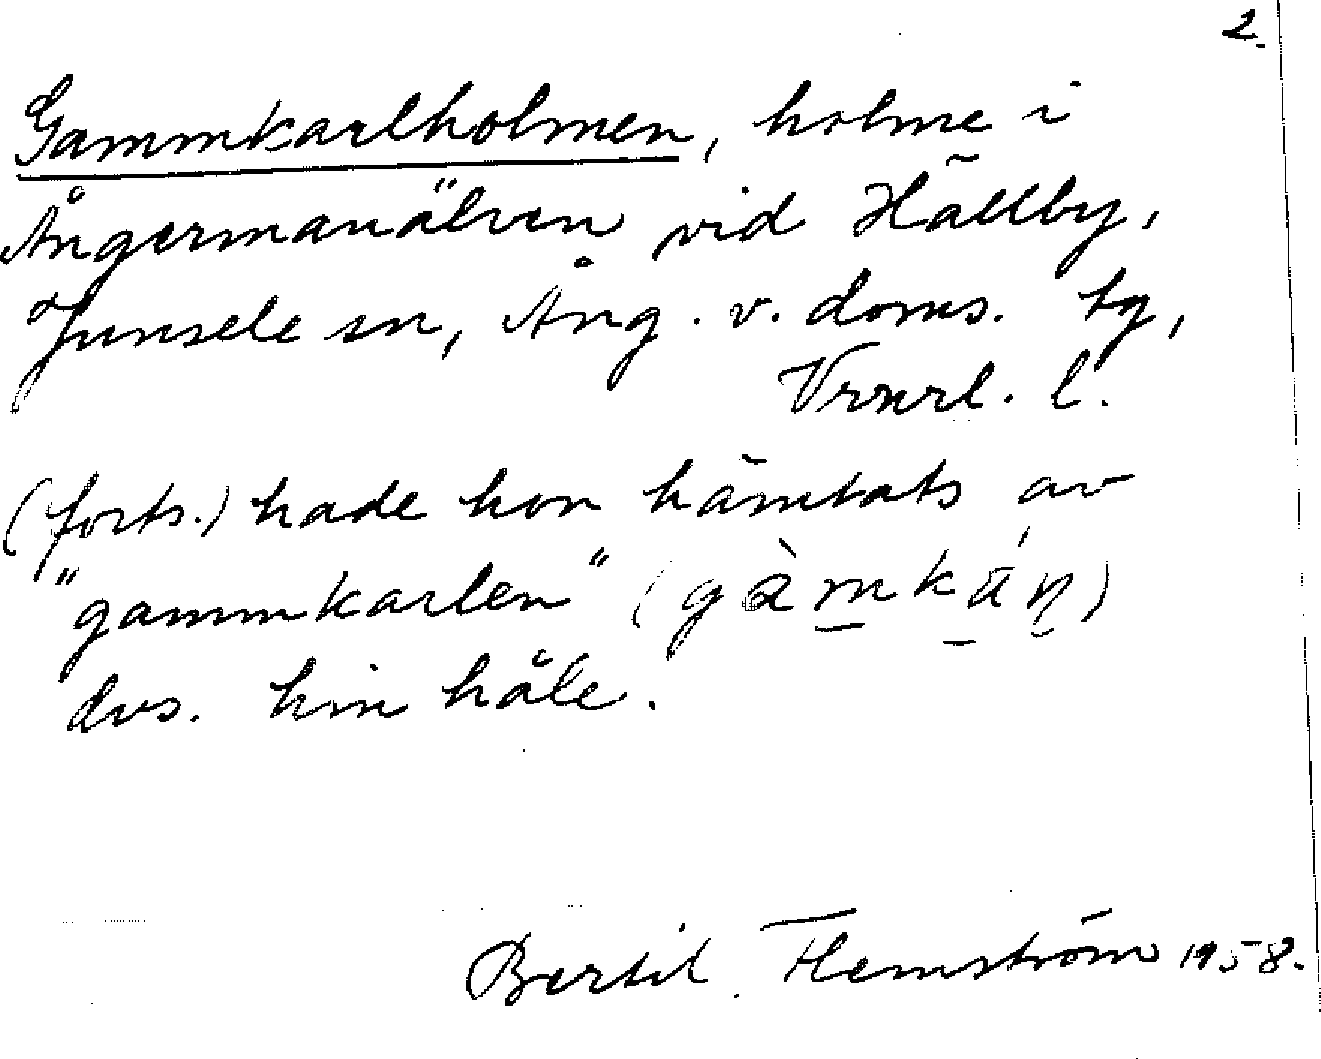 2.
Gammkarlholmen, holme i
Ångermanälven vid Hällby,
Junsele sn, Ång. v. doms. tg,
Vrnrl. l.
(forts.) hade hon hämtats av
"gammkarlen" (gàmkáṇ)
dvs. hin håle.
Bertil Flemström 1958.